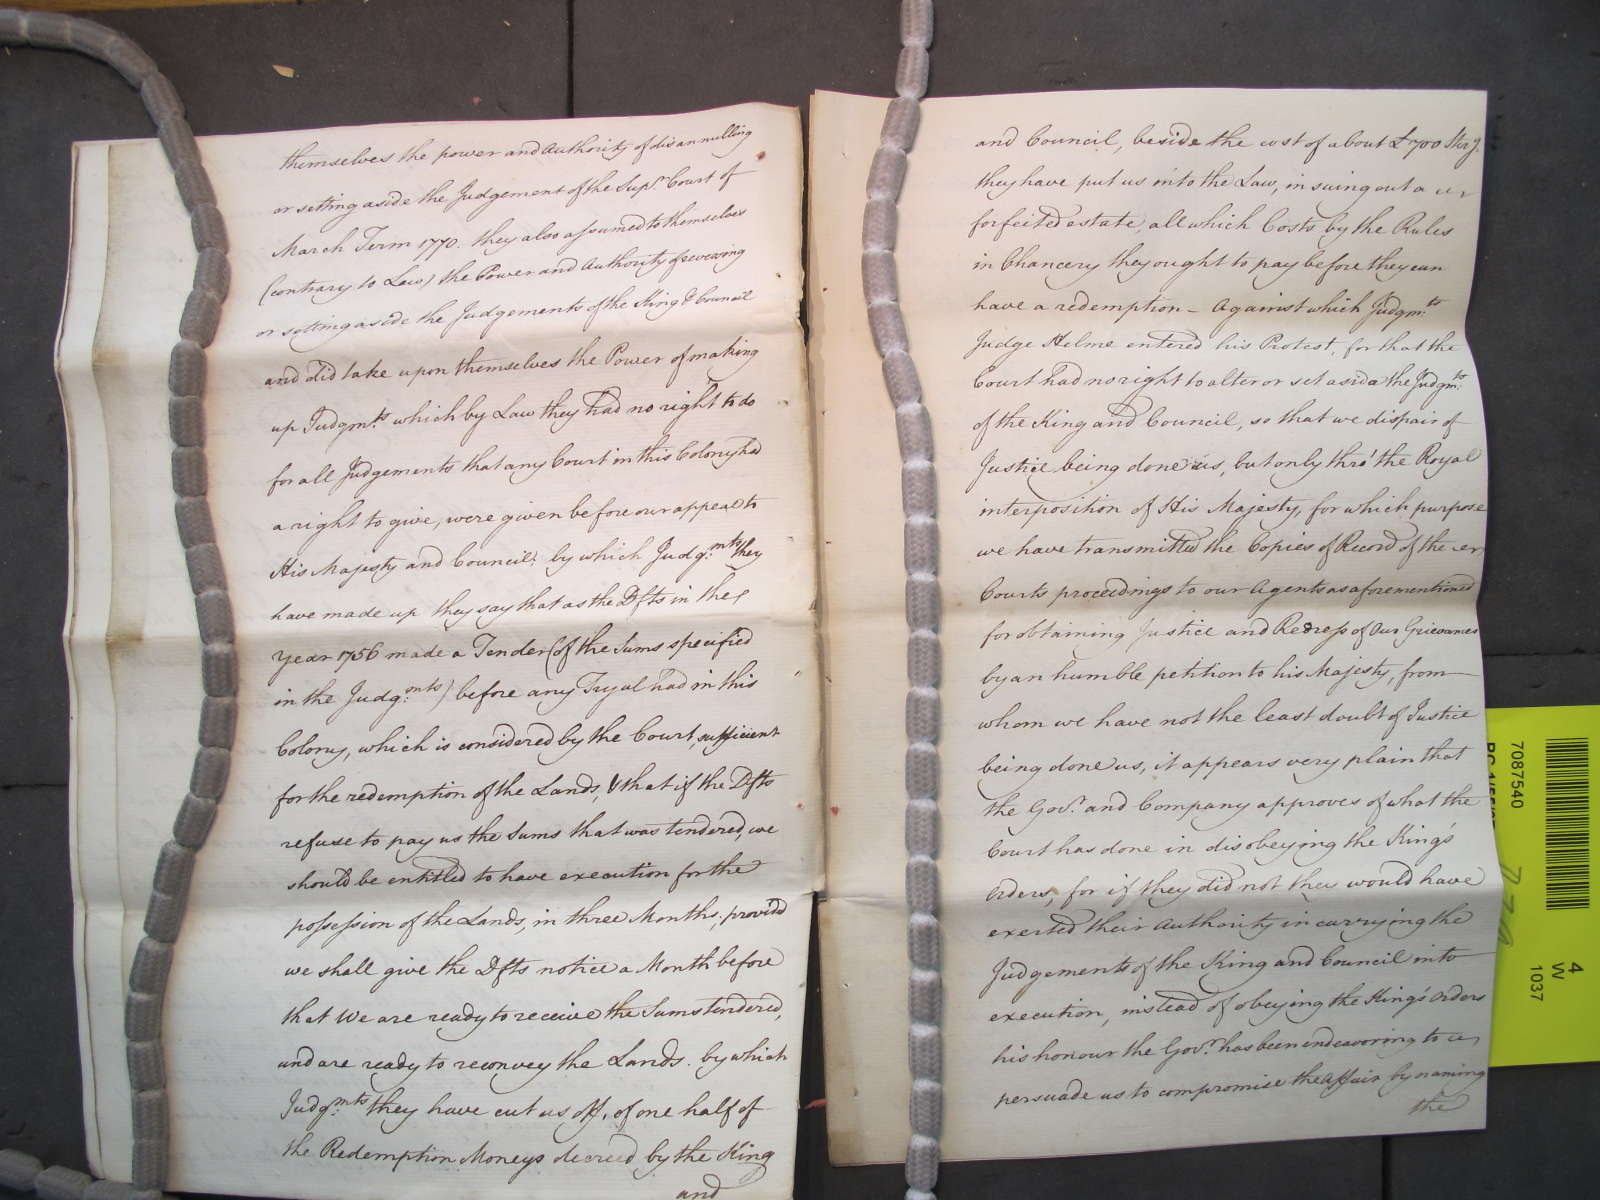 themselves the power and Authority of disannulling
or setting aside the Judgement of the Supr. Court of
March Term 1770. they also assumed to themselves
(contrary to Law) the Power and Authority of reversing
or setting aside the Judgements of the King & Council
and did take upon themselves the Power of making
up Judgmts. which by Law they had no right to do
for all Judgements that any Court in this Colony had
a right to give, were given before our appeal to
His Majesty and Council; by which Judg:mts they
have made up they say that as the Dfts in the
year 1756 made a Tender (of the Sums specified
in the Judg:mts) before any Tryal had in this
Colony, which is considered by the Court, sufficient
for the redemption of the Lands, & that if the Dfts
refuse to pay us the Sums that was tendered, we
should be entitled to have execution for the
possession of the Lands, in three Months; provid
we shall give the Dfts notice a Month before
that We are ready to receive the Sums tendered,
and are ready to reconvey the Lands. by which
Judg:mts they have cut us off, of one half of
the Redemption Moneys decreed by the King
and
and Council, beside the cost of about £700 Sterg.
they have put us into the Law, in suing out a
forfeited estate, all which Costs by the Rules
in Chancery they ought to pay before they can
have a redemption - Against which Judgmts.
Judge Helme entered his Protest, for that the
Court had no right to alter or set aside the Judgmts.
of the King and Council, so that we dispair of
Justice being done us, but only thro' the Royal
interposition of His Majesty, for which purpose
we have transmitted the Copies of Record of the
Courts proceedings to our Agents as aforementioned
for obtaining Justice and Redress of Our Grievances
by an humble petition to his Majesty, from
whom we have not the least doubt of Justice
being done us, it appears very plain that
the Govr. and Company approves of what the
Court has done in disobeying the King's
Orders, for if they did not they would have
exerted their Authority in carrying the
Judgements of the King and Council into
execution, instead of obeying the King's Orders
his honour the Govr. has been endeavoring to
persuade us to compromise the Affair by naming
the
7087540
4
W
1037